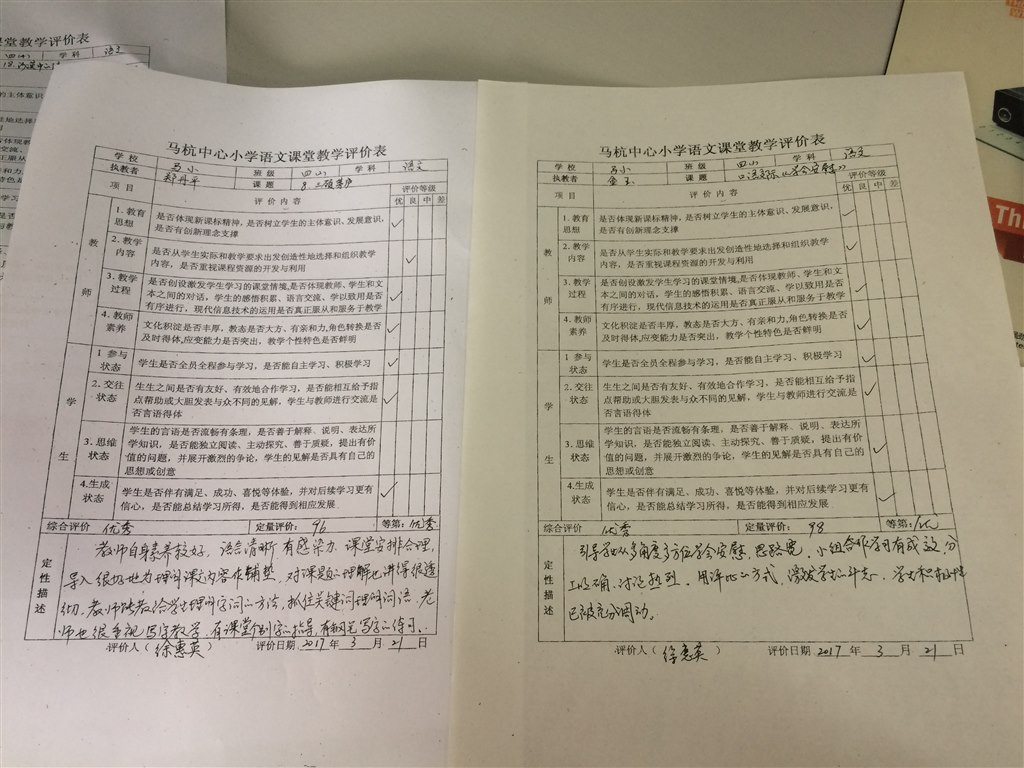 课堂教学评价表
学科 语文
的主体意识
马杭中心小学语文课堂教学评价表
学校 马小 班级 四 学科 语文
执教者 郑丹平 课题
项目 评价内容 评价等级
优 良 中 差
教师
1.教育思想 是否体现新课标精神，是否树立学生的主体意识、发展意识，
是否有创新理念支撑
2.教学内容 是否从学生实际和教学要求出发创造性地选择和组织教学
内容，是否重视课程资源的开发与利用
3.教学过程 是否创设激发学生学习的课堂情境,是否体现教师、学生和文
本之间的对话，学生的感悟积累、语言交流、学以致用是否
有序进行，现代信息技术的运用是否真正服从和服务于教学
4.教师素养 文化积淀是否丰厚，教态是否大方、有亲和力,角色转换是否
及时得体,应变能力是否突出，教学个性特色是否鲜明
学生
1 参与状态 学生是否全员全程参与学习，是否能自主学习、积极学习
2.交往状态 生生之间是否有友好、有效地合作学习，是否能相互给予指
点帮助或大胆发表与众不同的见解，学生与教师进行交流是
否言语得体
3.思维状态 学生的言语是否流畅有条理，是否善于解释、说明、表达所
学知识，是否能独立阅读、主动探究、善于质疑，提出有价
值的问题，并展开激烈的争论，学生的见解是否具有自己的
思想或创意
4.生成状态 学生是否伴有满足、成功、喜悦等体验，并对后续学习更有
信心，是否能总结学习所得，是否能得到相应发展
综合评价 优秀 定量评价： 96 等第：优秀
定性描述
教师自身素养较好，语言清晰 有感染力，课堂安排合理，
导入很好地为理解课文内容作铺垫，对课题的理解也讲得很透
彻，教师能教给学生理解字词的方法，抓住关键词理解词语，老
师也很重视写字教学，有课堂个别字的指导，有钢笔写字的练习。
评价人（ 徐惠英 ） 评价日期 2017 年 3 月 21 日
马杭中心小学语文课堂教学评价表
学校 马小 班级 四 学科 语文
执教者 金玉 课题 口语交际《学会安慰》
项目 评价内容 评价等级
优 良 中 差
教师
1.教育思想 是否体现新课标精神，是否树立学生的主体意识、发展意识，
是否有创新理念支撑
2.教学内容 是否从学生实际和教学要求出发创造性地选择和组织教学
内容，是否重视课程资源的开发与利用
3.教学过程 是否创设激发学生学习的课堂情境,是否体现教师、学生和文
本之间的对话，学生的感悟积累、语言交流、学以致用是否
有序进行，现代信息技术的运用是否真正服从和服务于教学
4.教师素养 文化积淀是否丰厚，教态是否大方、有亲和力,角色转换是否
及时得体,应变能力是否突出，教学个性特色是否鲜明
学生
1 参与状态 学生是否全员全程参与学习，是否能自主学习、积极学习
2.交往状态 生生之间是否有友好、有效地合作学习，是否能相互给予指
点帮助或大胆发表与众不同的见解，学生与教师进行交流是
否言语得体
3.思维状态 学生的言语是否流畅有条理，是否善于解释、说明、表达所
学知识，是否能独立阅读、主动探究、善于质疑，提出有价
值的问题，并展开激烈的争论，学生的见解是否具有自己的
思想或创意
4.生成状态 学生是否伴有满足、成功、喜悦等体验，并对后续学习更有
信心，是否能总结学习所得，是否能得到相应发展
综合评价 优秀 定量评价： 98 等第：优
定性描述
引导学生从多角度多方位学会安慰，思路宽，小组合作学习有成效，分
工明确，讨论热烈，用评比的方式，激发学生的斗志，学生积极性
已被充分调动。
评价人（ 徐惠英 ） 评价日期 2017 年 3 月 21 日
Th